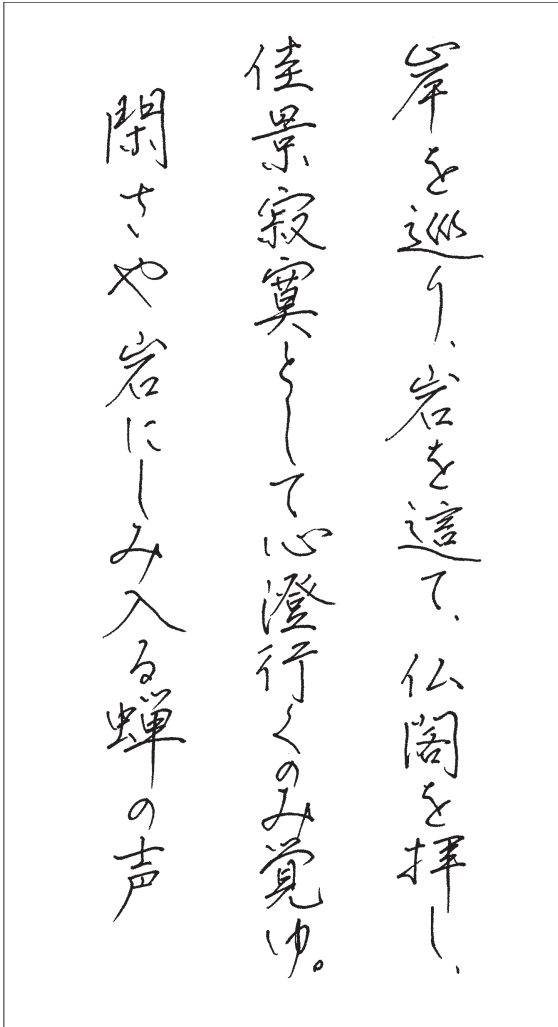 岸を巡り、岩を這て、仏閣を拝し、
佳景寂寞として心澄行くのみ覚ゆ。
閑さや岩にしみ入る蝉の声